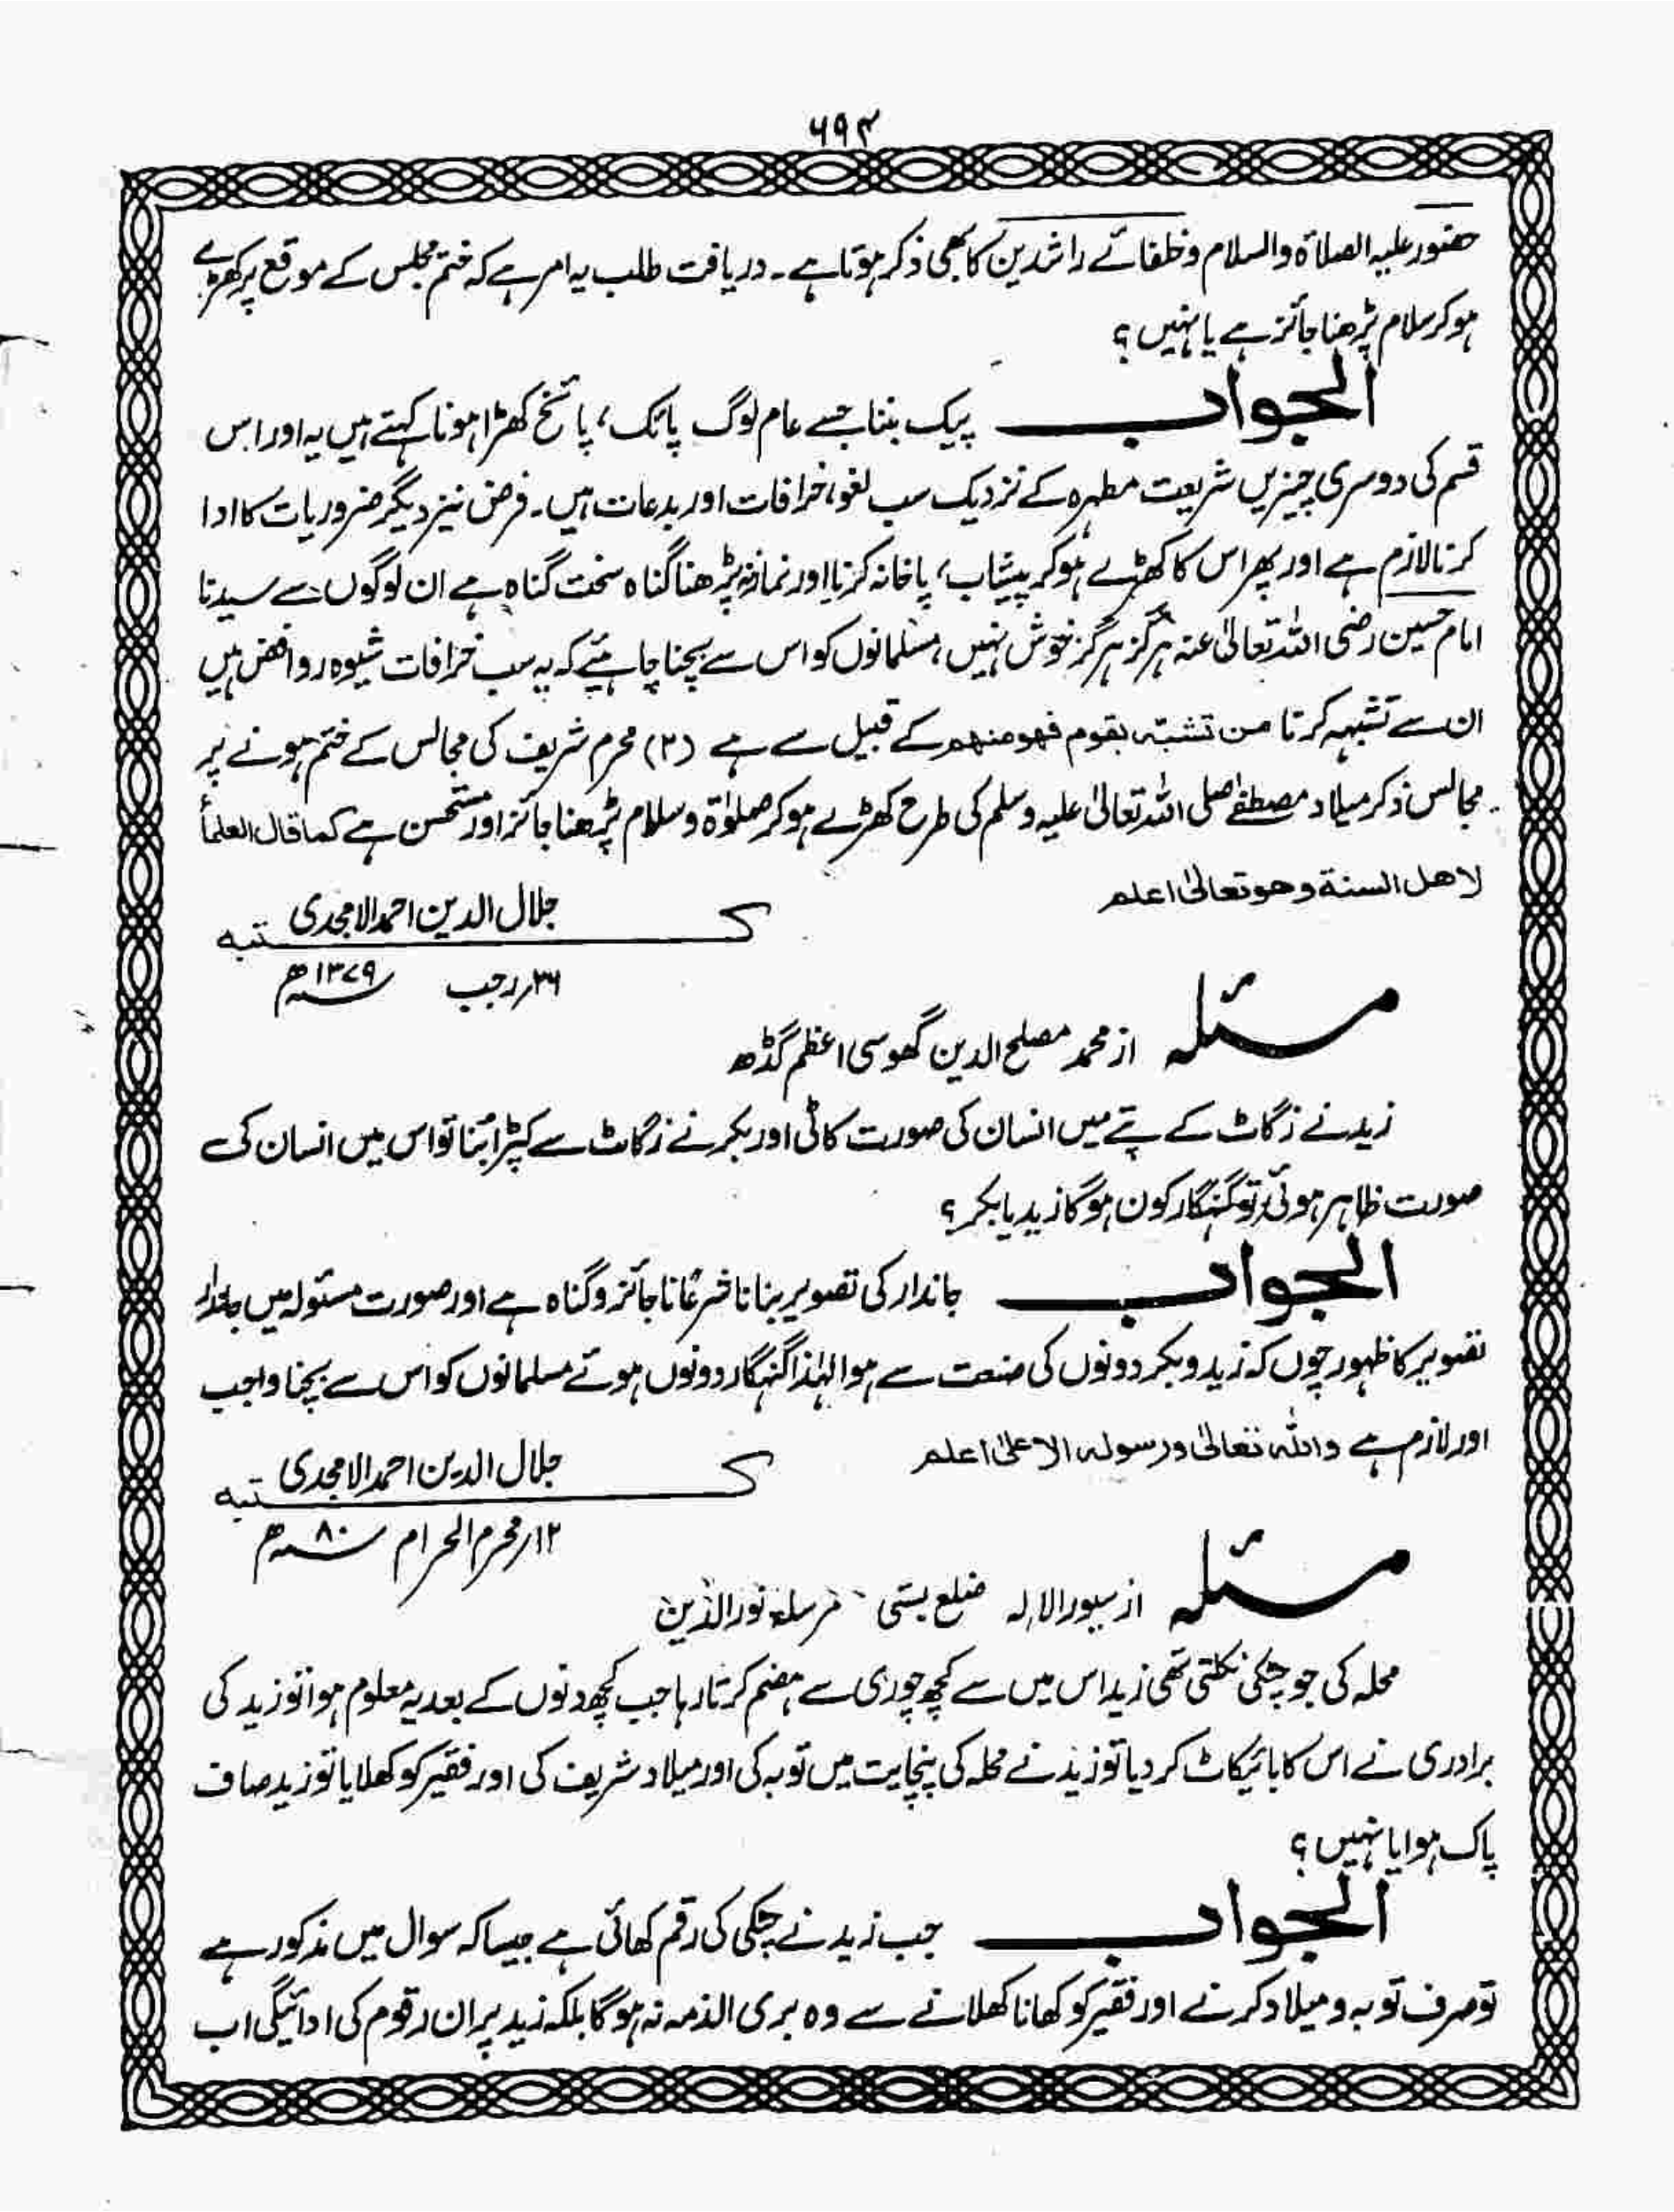 ۶۹۳
حضور علیہ الصلاۃ والسلام و خلفائے راشدین کا بھی ذکر ہوتا ہے۔ دریافت طلب یہ امر ہے کہ ختم مجلس کے موقع پر کھڑے
ہو کر سلام پڑھنا جائز ہے یا نہیں؟
الجواب پیک بننا جسے عام لوگ پائک، پائخ کھڑا ہونا کہتے ہیں یہ اور اس
قسم کی دوسری چیزیں شریعت مطہرہ کے نزدیک سب لغو، خرافات اور بدعات ہیں۔ فرض نیز دیگر ضروریات کا ادا
کرنا لازم ہے اور پھر اس کا کھڑے ہو کر پیشاب، پاخانہ کرنا اور نماز نہ پڑھنا گناہ سخت گناہ ہے ان لوگوں سے سیدنا
امام حسین رضی اللہ تعالیٰ عنہ ہرگز ہرگز خوش نہیں، مسلمانوں کو اس سے بچنا چاہیئے کہ یہ سب خرافات شیوہ روافض ہیں
ان سے تشبہ کرنا من تشبہ بقوم فھو منھم کے قبیل سے ہے (۲) محرم شریف کی مجالس کے ختم ہونے پر
مجالس ذکر میلاد مصطفےٰ صلی اللہ تعالیٰ علیہ وسلم کی طرح کھڑے ہو کر صلوٰۃ و سلام پڑھنا جائز اور مستحسن ہے کما قال العلماء
لاھل السنۃ وھو تعالیٰ اعلم
کتبہ جلال الدین احمد الامجدی
۲۶؍ رجب ۱۳۷۹ھ
مسئلہ از محمد مصلح الدین گھوسی اعظم گڈھ
زید نے زگاٹ کے پتے میں انسان کی صورت کاٹی اور بکر نے زگاٹ سے کپڑا بُنا تو اس میں انسان کی
صورت ظاہر ہوئی تو گنہگار کون ہوگا زید یا بکر؟
الجواب جاندار کی تصویر بنانا شرعًا ناجائز و گناہ ہے اور صورت مسئولہ میں جاندار
تصویر کا ظہور چوں کہ زید و بکر دونوں کی صنعت سے ہوا لہٰذا گنہگار دونوں ہوئے مسلمانوں کو اس سے بچنا واجب
اور لازم ہے واللہ تعالیٰ ورسولہ الاعلیٰ اعلم
کتبہ جلال الدین احمد الامجدی
۱۲؍ محرم الحرام ۸۰ھ
مسئلہ از ضلع بستی مرسلہ نور الدین
محلہ کی جو چٹکی نکلتی تھی زید اس میں سے کچھ چوری سے ہضم کرتا رہا جب کچھ دنوں کے بعد یہ معلوم ہوا تو زید کی
برادری نے اس کا بائیکاٹ کر دیا تو زید نے محلہ کی پنچایت میں توبہ کی اور میلاد شریف کی اور فقیر کو کھلایا تو زید صاف
پاک ہوا یا نہیں؟
الجواب جب زید نے چٹکی کی رقم کھائی ہے جیسا کہ سوال میں مذکور ہے
تو صرف توبہ و میلاد کرنے اور فقیر کو کھانا کھلانے سے وہ بری الذمہ نہ ہوگا بلکہ زید پر ان رقوم کی ادائیگی اب